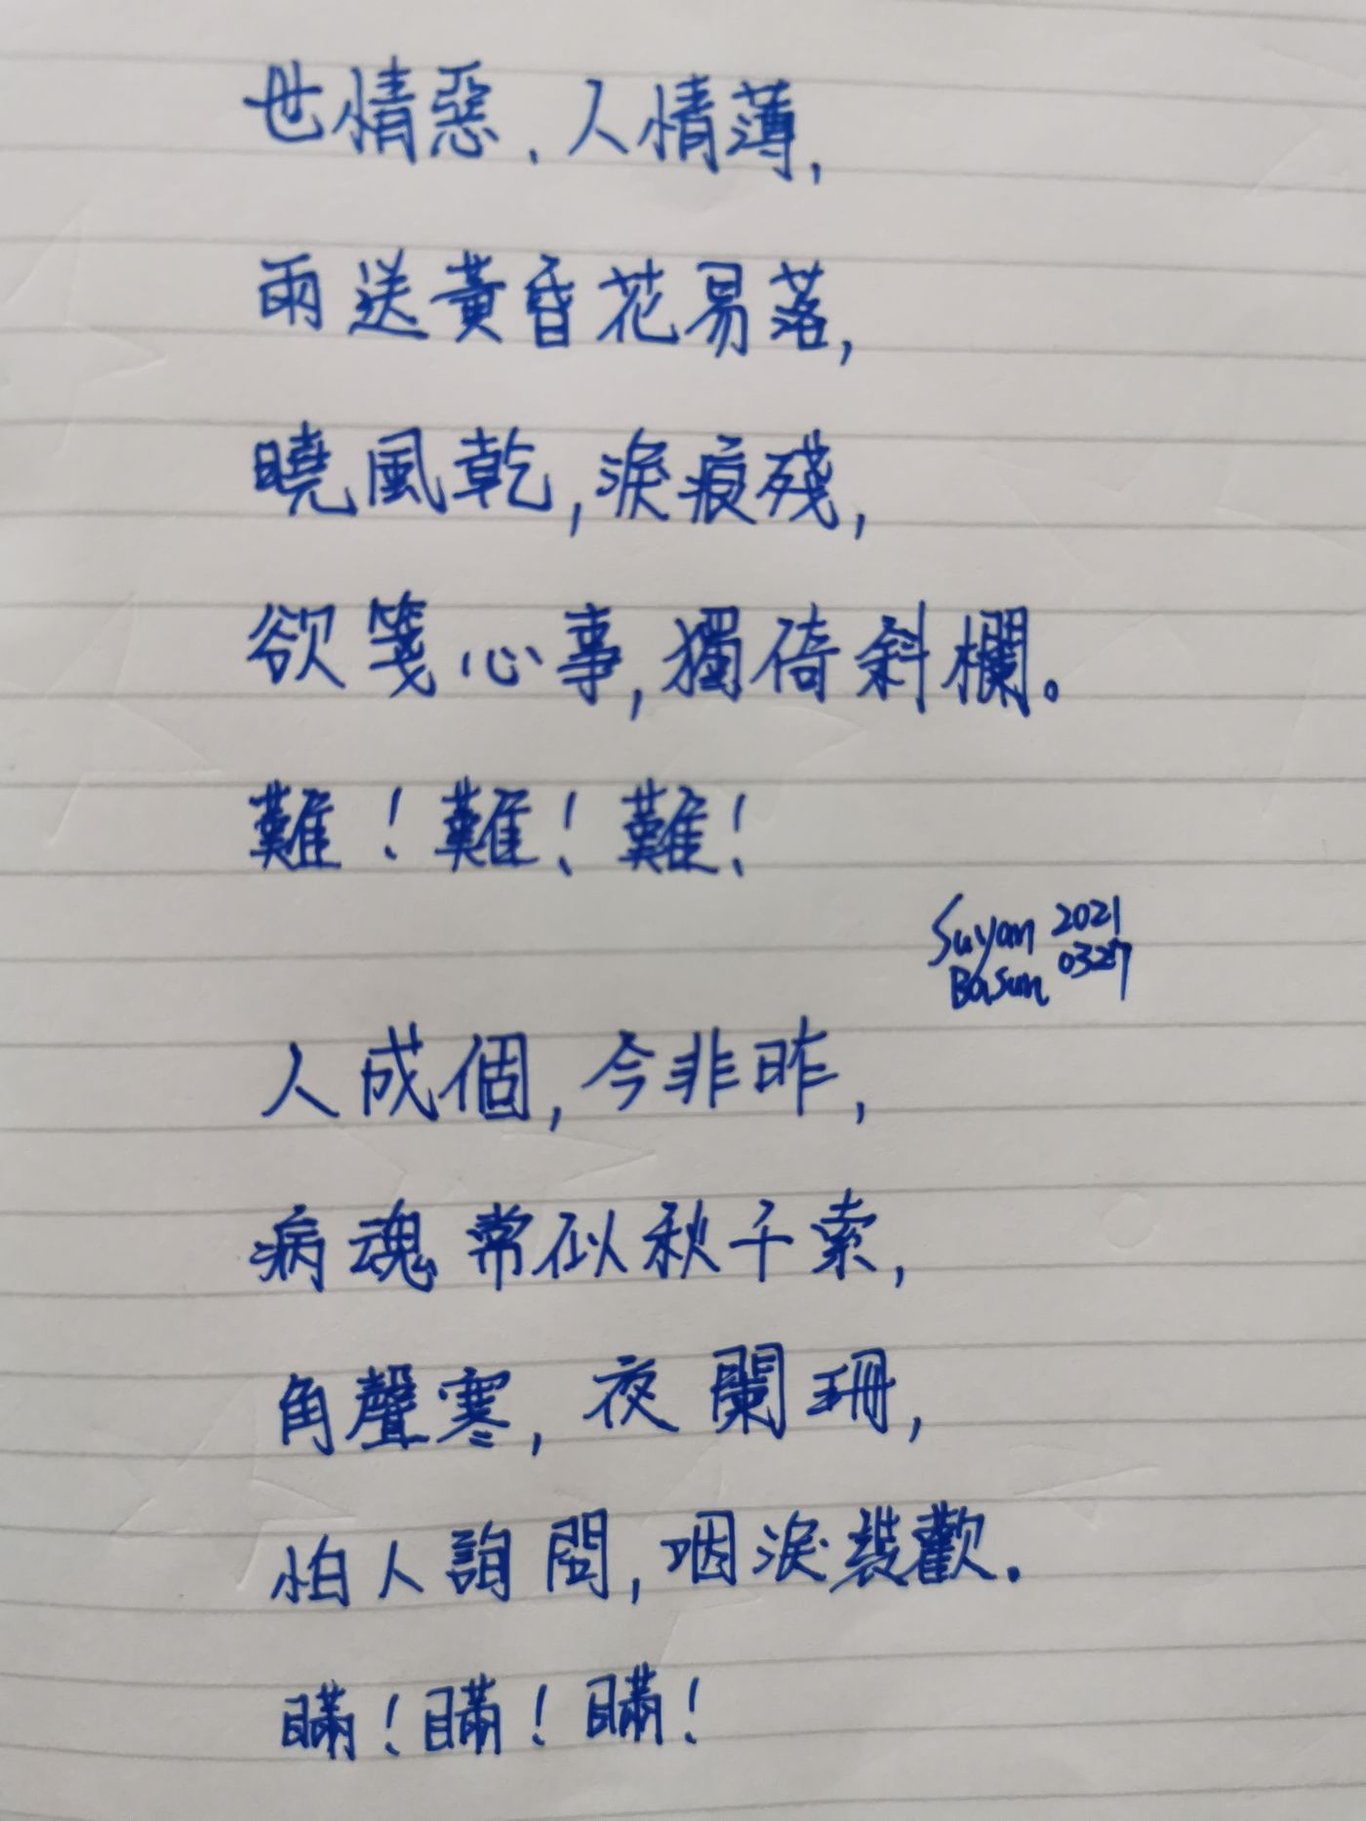 世情惡，人情薄，
雨送黃昏花易落，
曉風乾，淚痕殘，
欲箋心事，獨倚斜欄。
難！難！難！
Suyan 2021
Basun 0327
人成個，今非昨，
病魂常似秋千索，
角聲寒，夜闌珊，
怕人詢問，咽淚裝歡.
瞞！瞞！瞞！